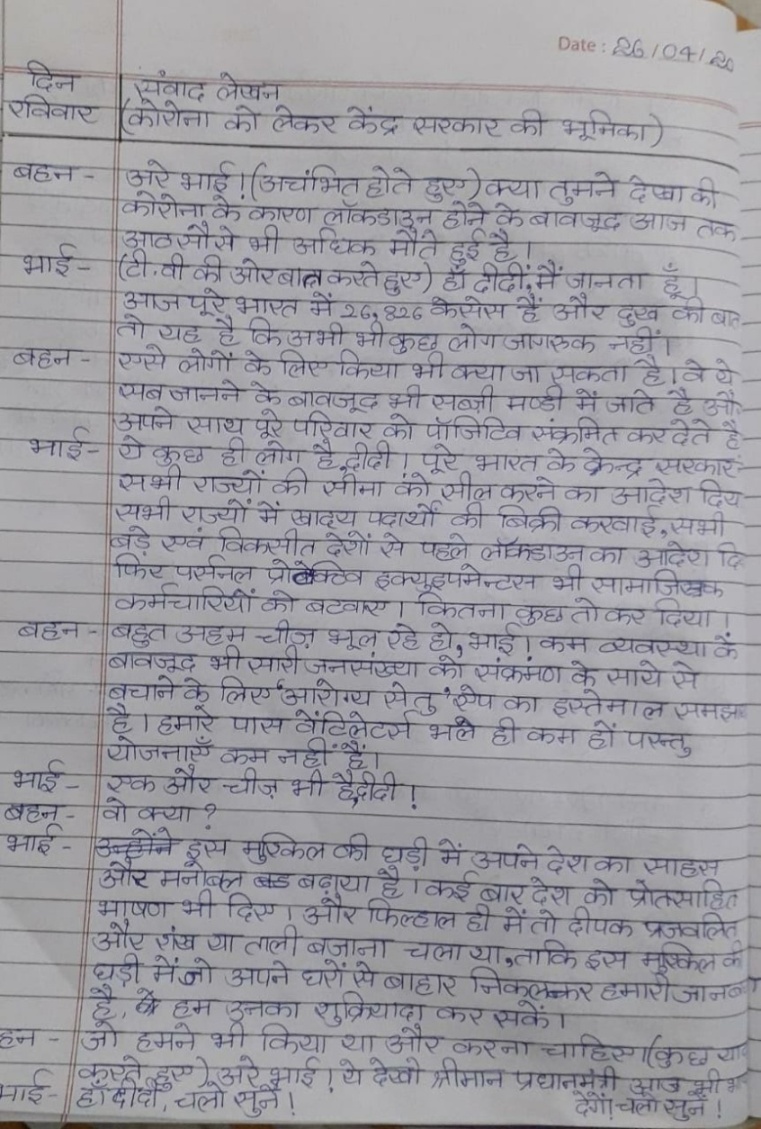 Date : 26/04/20
दिन संवाद लेखन
रविवार (कोरोना को लेकर केंद्र सरकार की भूमिका)
बहन - अरे भाई! (अचंभित होते हुए) क्या तुमने देखा की
कोरोना के कारण लॉकडाउन होने के बावजूद आज तक
आठ सौ से भी अधिक मौते हुई है।
भाई - (टी.वी की ओर बात करते हुए) हाँ दीदी, मैं जानता हूँ।
आज पूरे भारत में 26,826 केसेस हैं और दुख की बात
तो यह है कि अभी भी कुछ लोग जागरुक नहीं।
बहन - एसे लोगों के लिए किया भी क्या जा सकता है। वे ये
सब जानने के बावजूद भी सब्ज़ी मण्डी में जाते है औ
अपने साथ पूरे परिवार को पॉजिटिव संक्रमित कर देते है
भाई - ये कुछ ही लोग है, दीदी। पूरे भारत के केन्द्र सरकार
सभी राज्यों की सीमा को सील करने का आदेश दिय
सभी राज्यों में खाद्य पदार्थों की बिक्री करवाई, सभी
बड़े एवं विकसीत देशों से पहले लॉकडाउन का आदेश दि
फिर पर्सनल प्रोटेक्टिव इक्युइपमेन्टस भी सामाजिक
कर्मचारियों को बटवाए। कितना कुछ तो कर दिया।
बहन - बहुत अहम चीज़ भूल रहे हो, भाई। कम व्यवस्था के
बावजूद भी सारी जनसंख्या को संक्रमण के साये से
बचाने के लिए 'आरोग्य सेतु' एेप का इस्तेमाल समझा
है। हमारे पास वेंटिलेटर्स भले ही कम हों परन्तु
योजनाएँ कम नहीं हैं।
भाई - एक और चीज़ भी है, दीदी!
बहन - वो क्या?
भाई - उन्होंने इस मुश्किल की घड़ी में अपने देश का साहस
और मनोबल बढ़ाया है। कई बार देश को प्रोत्साहित
भाषण भी दिए। और फिल्हाल ही में तो दीपक प्रजवलित
और शंख या ताली बजाना चला था, ताकि इस मुश्किल की
घड़ी में जो अपने घरों से बाहार निकलकर हमारी जान
है, हम उनका शुक्रियादा कर सकें।
हन - जो हमने भी किया था और करना चाहिए। (कुछ याद
करते हुए) अरे भाई! ये देखो श्रीमान प्रधानमंत्री आज भी भा
देंगे। चलो सुनें!
भाई - हाँ दीदी, चलो सुनें!